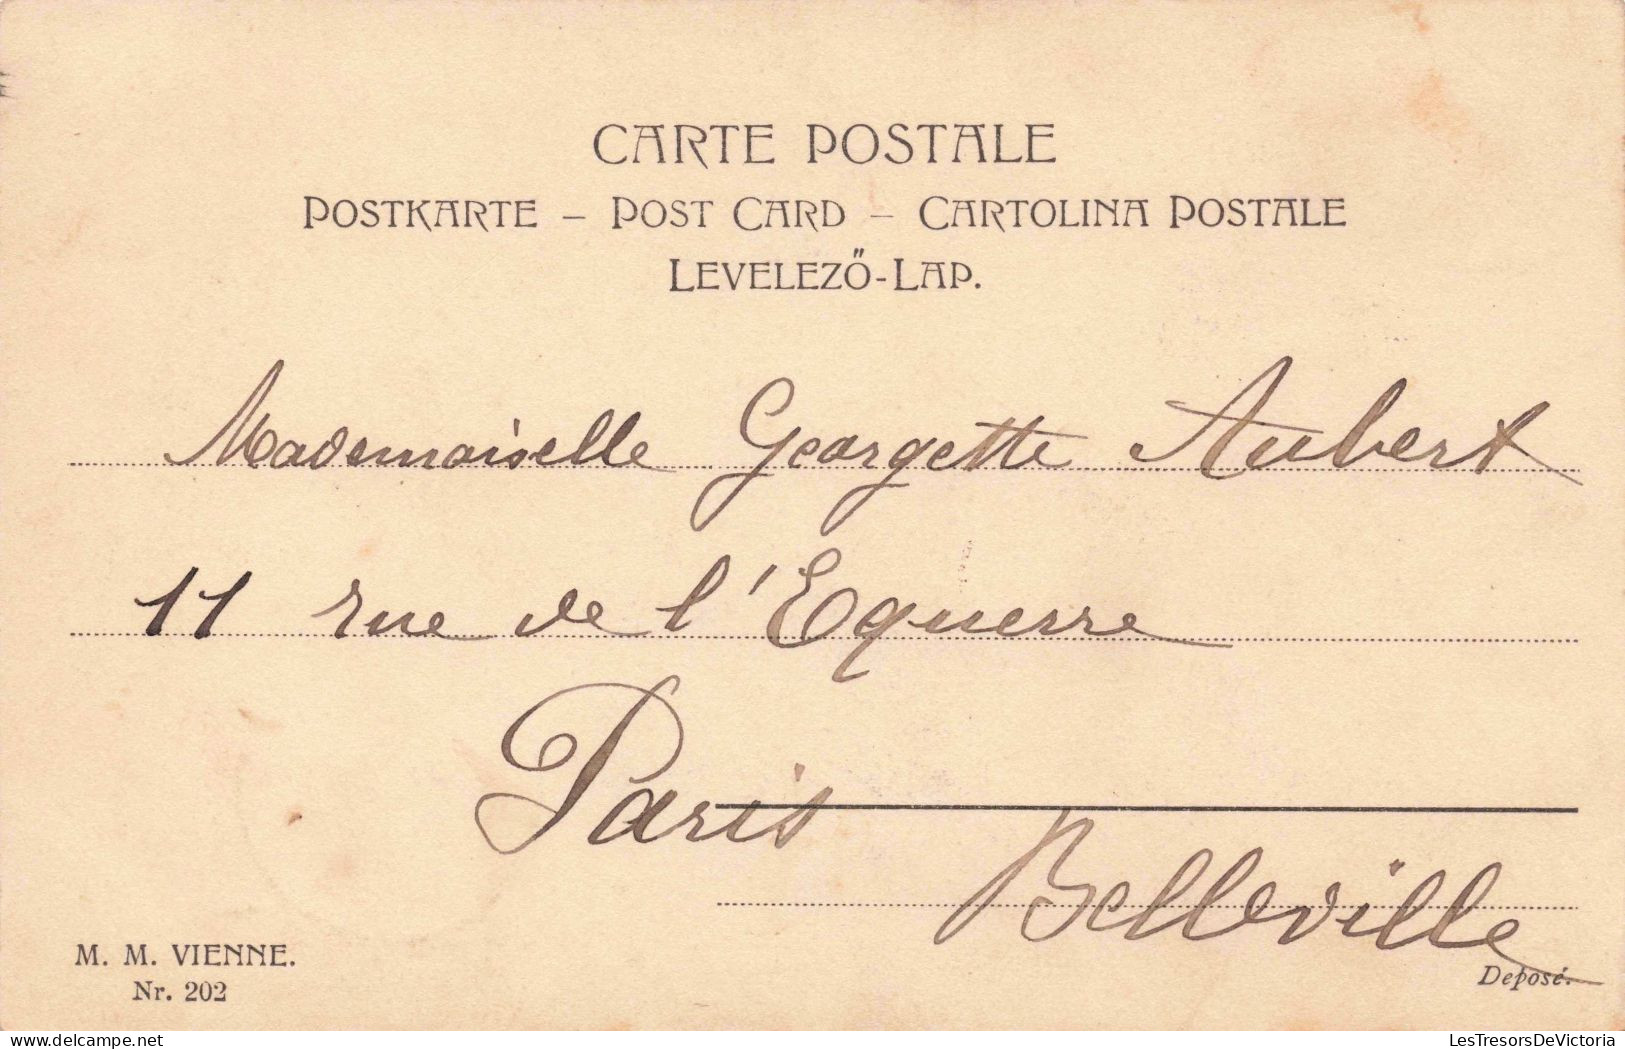 CARTE POSTALE
POSTKARTE – POST CARD – CARTOLINA POSTALE
LEVELEZŐ-LAP.
Mademoiselle Georgette Aubert
11 rue de l'Equerre
Paris
Belleville
M. M. VIENNE.
Nr. 202
Deposé.
delcampe.net
LesTresorsDeVictoria